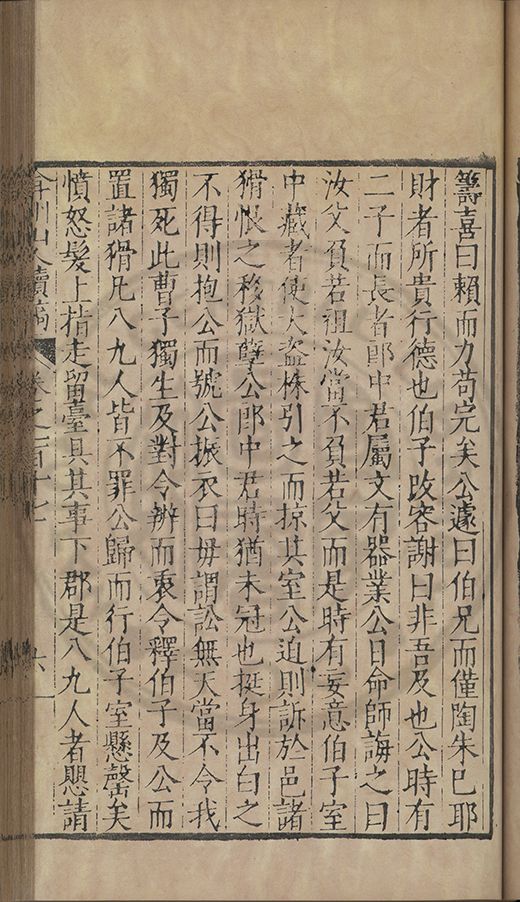 籌喜曰賴而力苟完矣公遽曰伯兄而僅陶朱已耶
財者所貴行德也伯子改容謝曰非吾及也公時有
二子而長者郎中君屬文有器業公日命師誨之曰
汝父負若祖汝當不負若父而是時有妄意伯子室
中藏者使大盜株引之而掠其室公迫則訴於邑諸
猾恨之移獄孽公郎中君時猶未冠也挺身出白之
不得則抱公而號公振衣曰毋謂訟無天當不令我
獨死此曹子獨生及對令辨而衷令釋伯子及公而
置諸猾凡八九人皆不罪公歸而行伯子室懸罄矣
憤怒髮上指走留臺具其事下郡是八九人者思請
弇州山人續稿 卷之一百十七 六